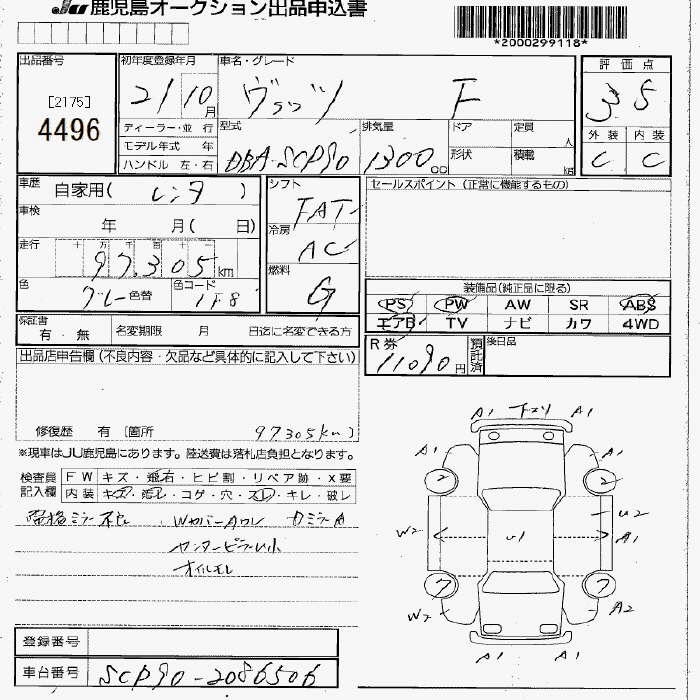 JU 鹿児島オークション出品申込書
*2000299118*
出品番号 初年度登録年月 車名・グレード 評価点
[2175]
4496
21/10月 ヴィッツ F 3 5
ディーラー・並行 型式 排気量 ドア 定員 人 外装 内装
モデル年式 年
ハンドル 左・右 DBA-SCP90 1300cc 形状 積載 kg C C
車歴 自家用(レンタ) シフト FAT セールスポイント(正常に機能するもの)
車検 年 月( 日) 冷房 AC
走行 十 万 千 百 十 一
97,305km 燃料 G
装備品(純正品に限る)
色 グレー 色替 色コード 1F8
PS PW AW SR ABS
エアB TV ナビ カワ 4WD
保証書 有・無 名変期限 月 日迄に名変できる方
R券 11090円 預託済 後日品
出品店申告欄(不良内容・欠品など具体的に記入して下さい)
修復歴 有 [箇所 97305km]
※現車はJU鹿児島にあります。陸送費は落札店負担となります。
検査員記入欄 FW キズ・飛石・ヒビ割・リペア跡・X要
内装 キズ・汚レ・コゲ・穴・スレ・キレ・破レ
格納ミラー不良 WカバーAワレ
センターピラー凹小
オイルモレ
A1 下スリ A1
A1 A1
2 2
W2 U1 U2
A1
7 7
W2 A2
A1 A1
登録番号
車台番号 SCP90-2086506